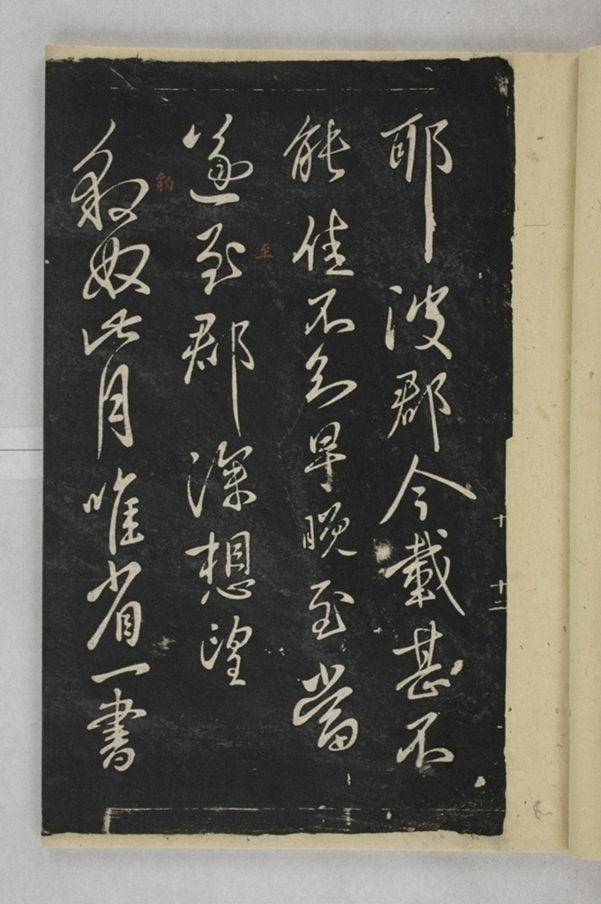 耶 彼郡今載甚不
能佳不知早晚至當
遂至郡深想望
豹奴此月唯省一書
至
豹
十 十二